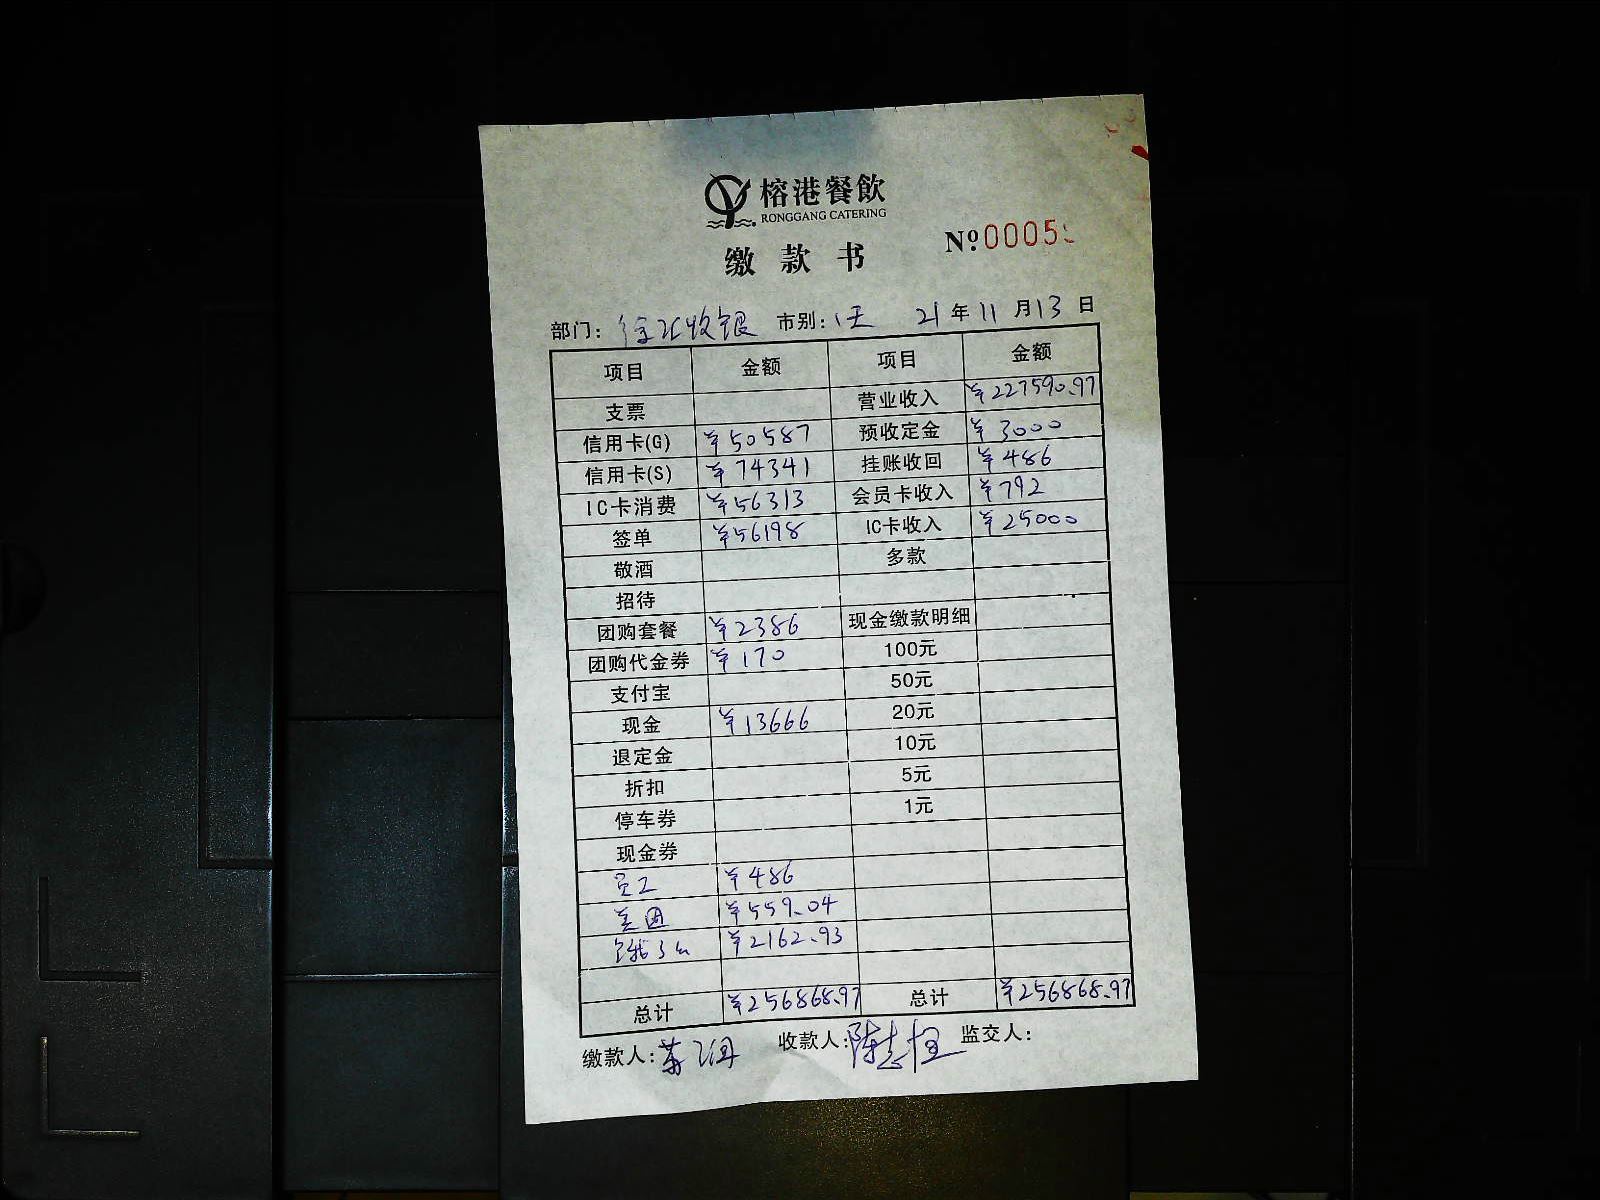 榕港餐飲
RONGGANG CATERING
缴款书
№00059
部门: 徐汇收银 市别: 1天 21年11月13日
项目 金额 项目 金额
支票 营业收入 ¥227590.97
信用卡(G) ¥50587 预收定金 ¥3000
信用卡(S) ¥74341 挂账收回 ¥486
IC卡消费 ¥56313 会员卡收入 ¥792
签单 ¥56198 IC卡收入 ¥25000
敬酒 多款
招待
团购套餐 ¥2386 现金缴款明细
团购代金券 ¥170 100元
支付宝 50元
现金 ¥13666 20元
退定金 10元
折扣 5元
停车券 1元
现金券
员工 ¥486
美团 ¥559.04
饿了么 ¥2162.93
总计 ¥256868.97 总计 ¥256868.97
缴款人: 收款人: 陈志恒 监交人: